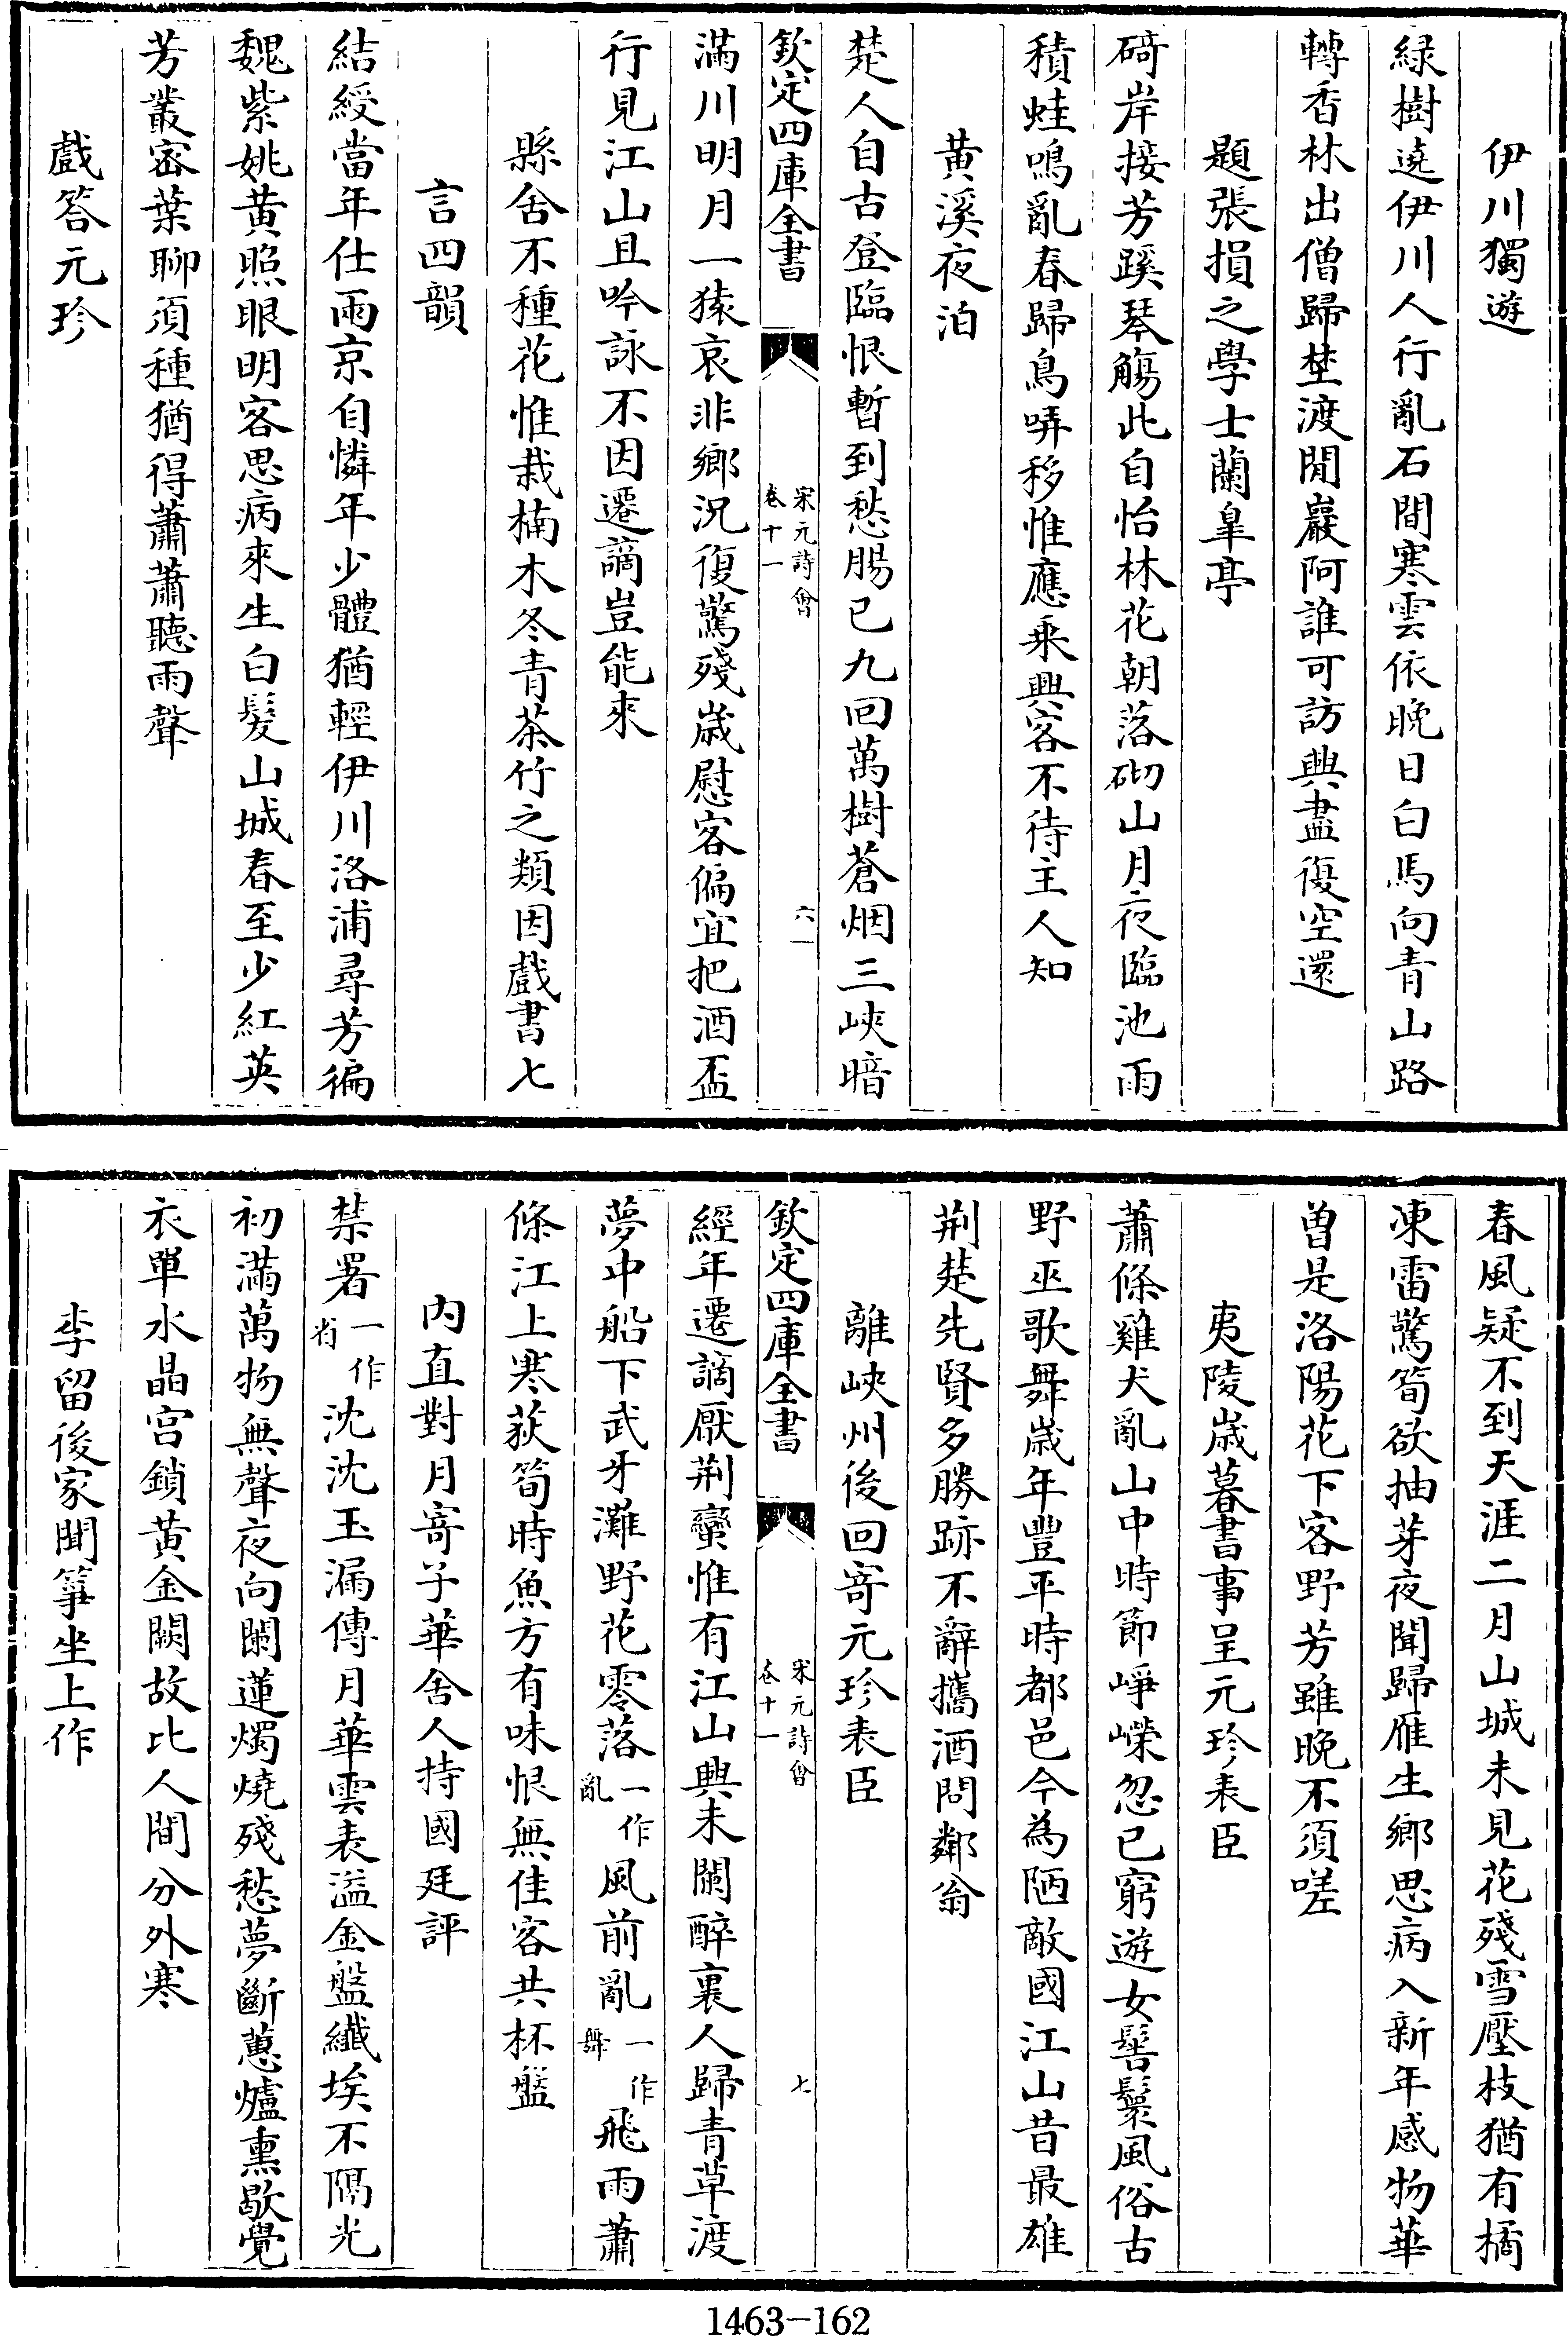 伊川獨遊
緑樹遶伊川人行亂石間寒雲依晚日白馬向青山路
轉香林出僧歸埜渡閒巖阿誰可訪興盡復空還
題張損之學士蘭臯亭
碕岸接芳蹊琴觴此自怡林花朝落砌山月夜臨池雨
積蛙鳴亂春歸鳥哢移惟應乘興客不待主人知
黄溪夜泊
楚人自古登臨恨暫到愁腸已九回萬樹蒼烟三峽暗
欽定四庫全書
宋元詩會
卷十一
六
滿川明月一猿哀非鄉況復驚殘歲慰客偏宜把酒盃
行見江山且吟詠不因遷謫豈能來
縣舍不種花惟栽楠木冬青茶竹之類因戲書七
言四韻
結綬當年仕兩京自憐年少體猶輕伊川洛浦尋芳徧
魏紫姚黄照眼明客思病來生白髮山城春至少紅英
芳叢密葉聊須種猶得蕭蕭聽雨聲
戲答元珍
春風疑不到天涯二月山城未見花殘雪壓枝猶有橘
凍雷驚筍欲抽芽夜聞歸雁生鄉思病入新年感物華
曾是洛陽花下客野芳雖晚不須嗟
夷陵歲暮書事呈元珍表臣
蕭條雞犬亂山中時節崢嶸忽已窮遊女髻鬟風俗古
野巫歌舞歲年豐平時都邑今為陋敵國江山昔最雄
荆楚先賢多勝跡不辭攜酒問鄰翁
離峽州後回寄元珍表臣
欽定四庫全書
宋元詩會
卷十一
七
經年遷謫厭荆蠻惟有江山興未闌醉裏人歸青草渡
夢中船下武牙灘野花零落一作亂風前亂一作舞飛雨蕭
條江上寒荻筍時魚方有味恨無佳客共杯盤
内直對月寄子華舍人持國廷評
禁署一作省沈沈玉漏傳月華雲表溢金盤纖埃不隔光
初滿萬物無聲夜向闌蓮燭燒殘愁夢斷蕙爐熏歇覺
衣單水晶宫鎖黄金闕故比人間分外寒
李留後家聞箏坐上作
1463-162